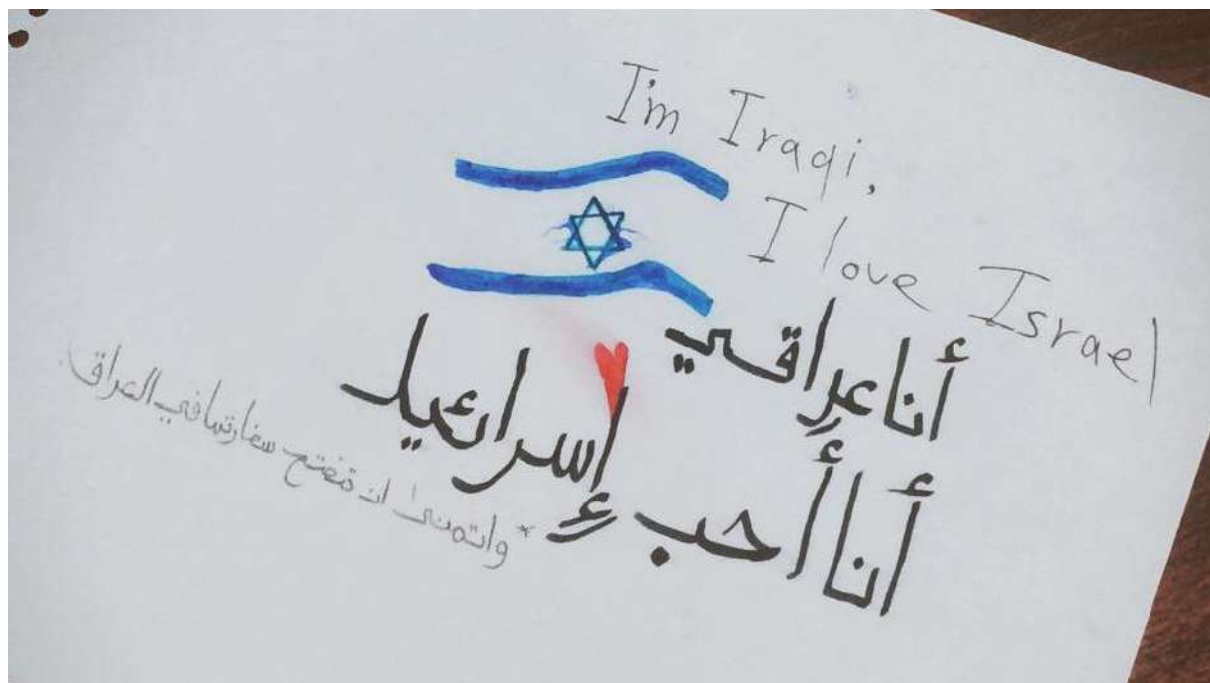 I'm Iraqi,
I love Israel
أنا عراقي
أنا أحب إسرائيل
* واتمنى ان تفتح سفارتها في العراق.